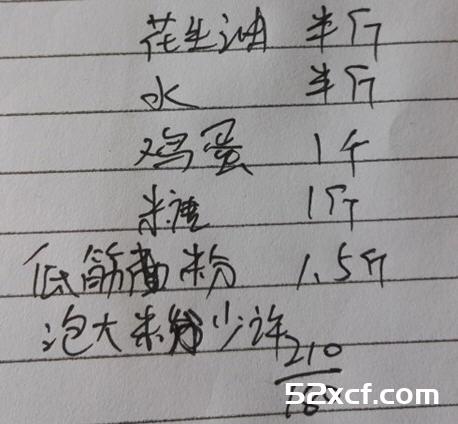 花生油 半斤
水 半斤
鸡蛋 1个
糖 1斤
低筋面粉 1.5斤
泡大粉少许
210
52xcf.com